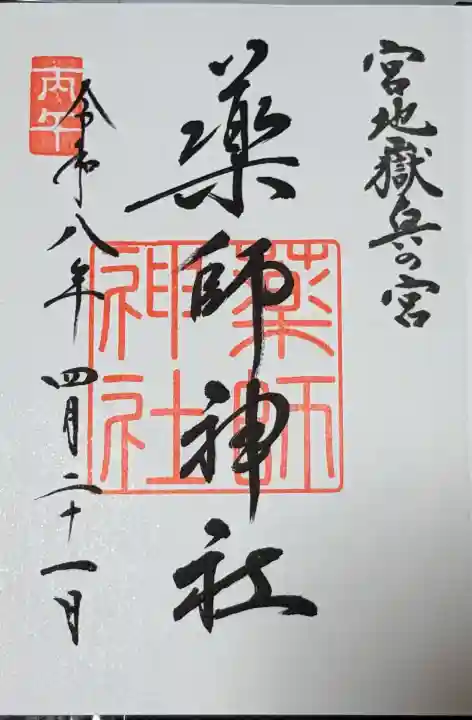 宮地嶽奥の宮
薬師神社
薬師神社
丙午
令和八年四月二十一日